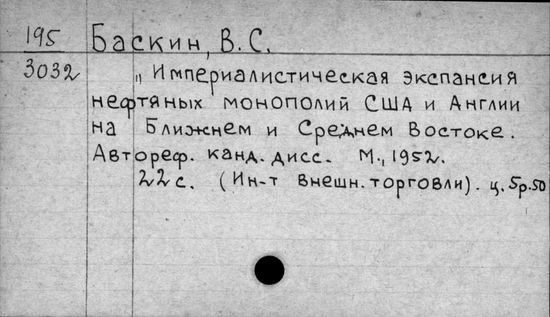 195 Баскин, В. С.
3032 „Империалистическая экспансия
нефтяных монополий США и Англии
на Ближнем и Среднем Востоке.
Автореф. канд. дисс. М., 1952.
22 с. (Ин-т внешн. торговли). ц. 5р.50